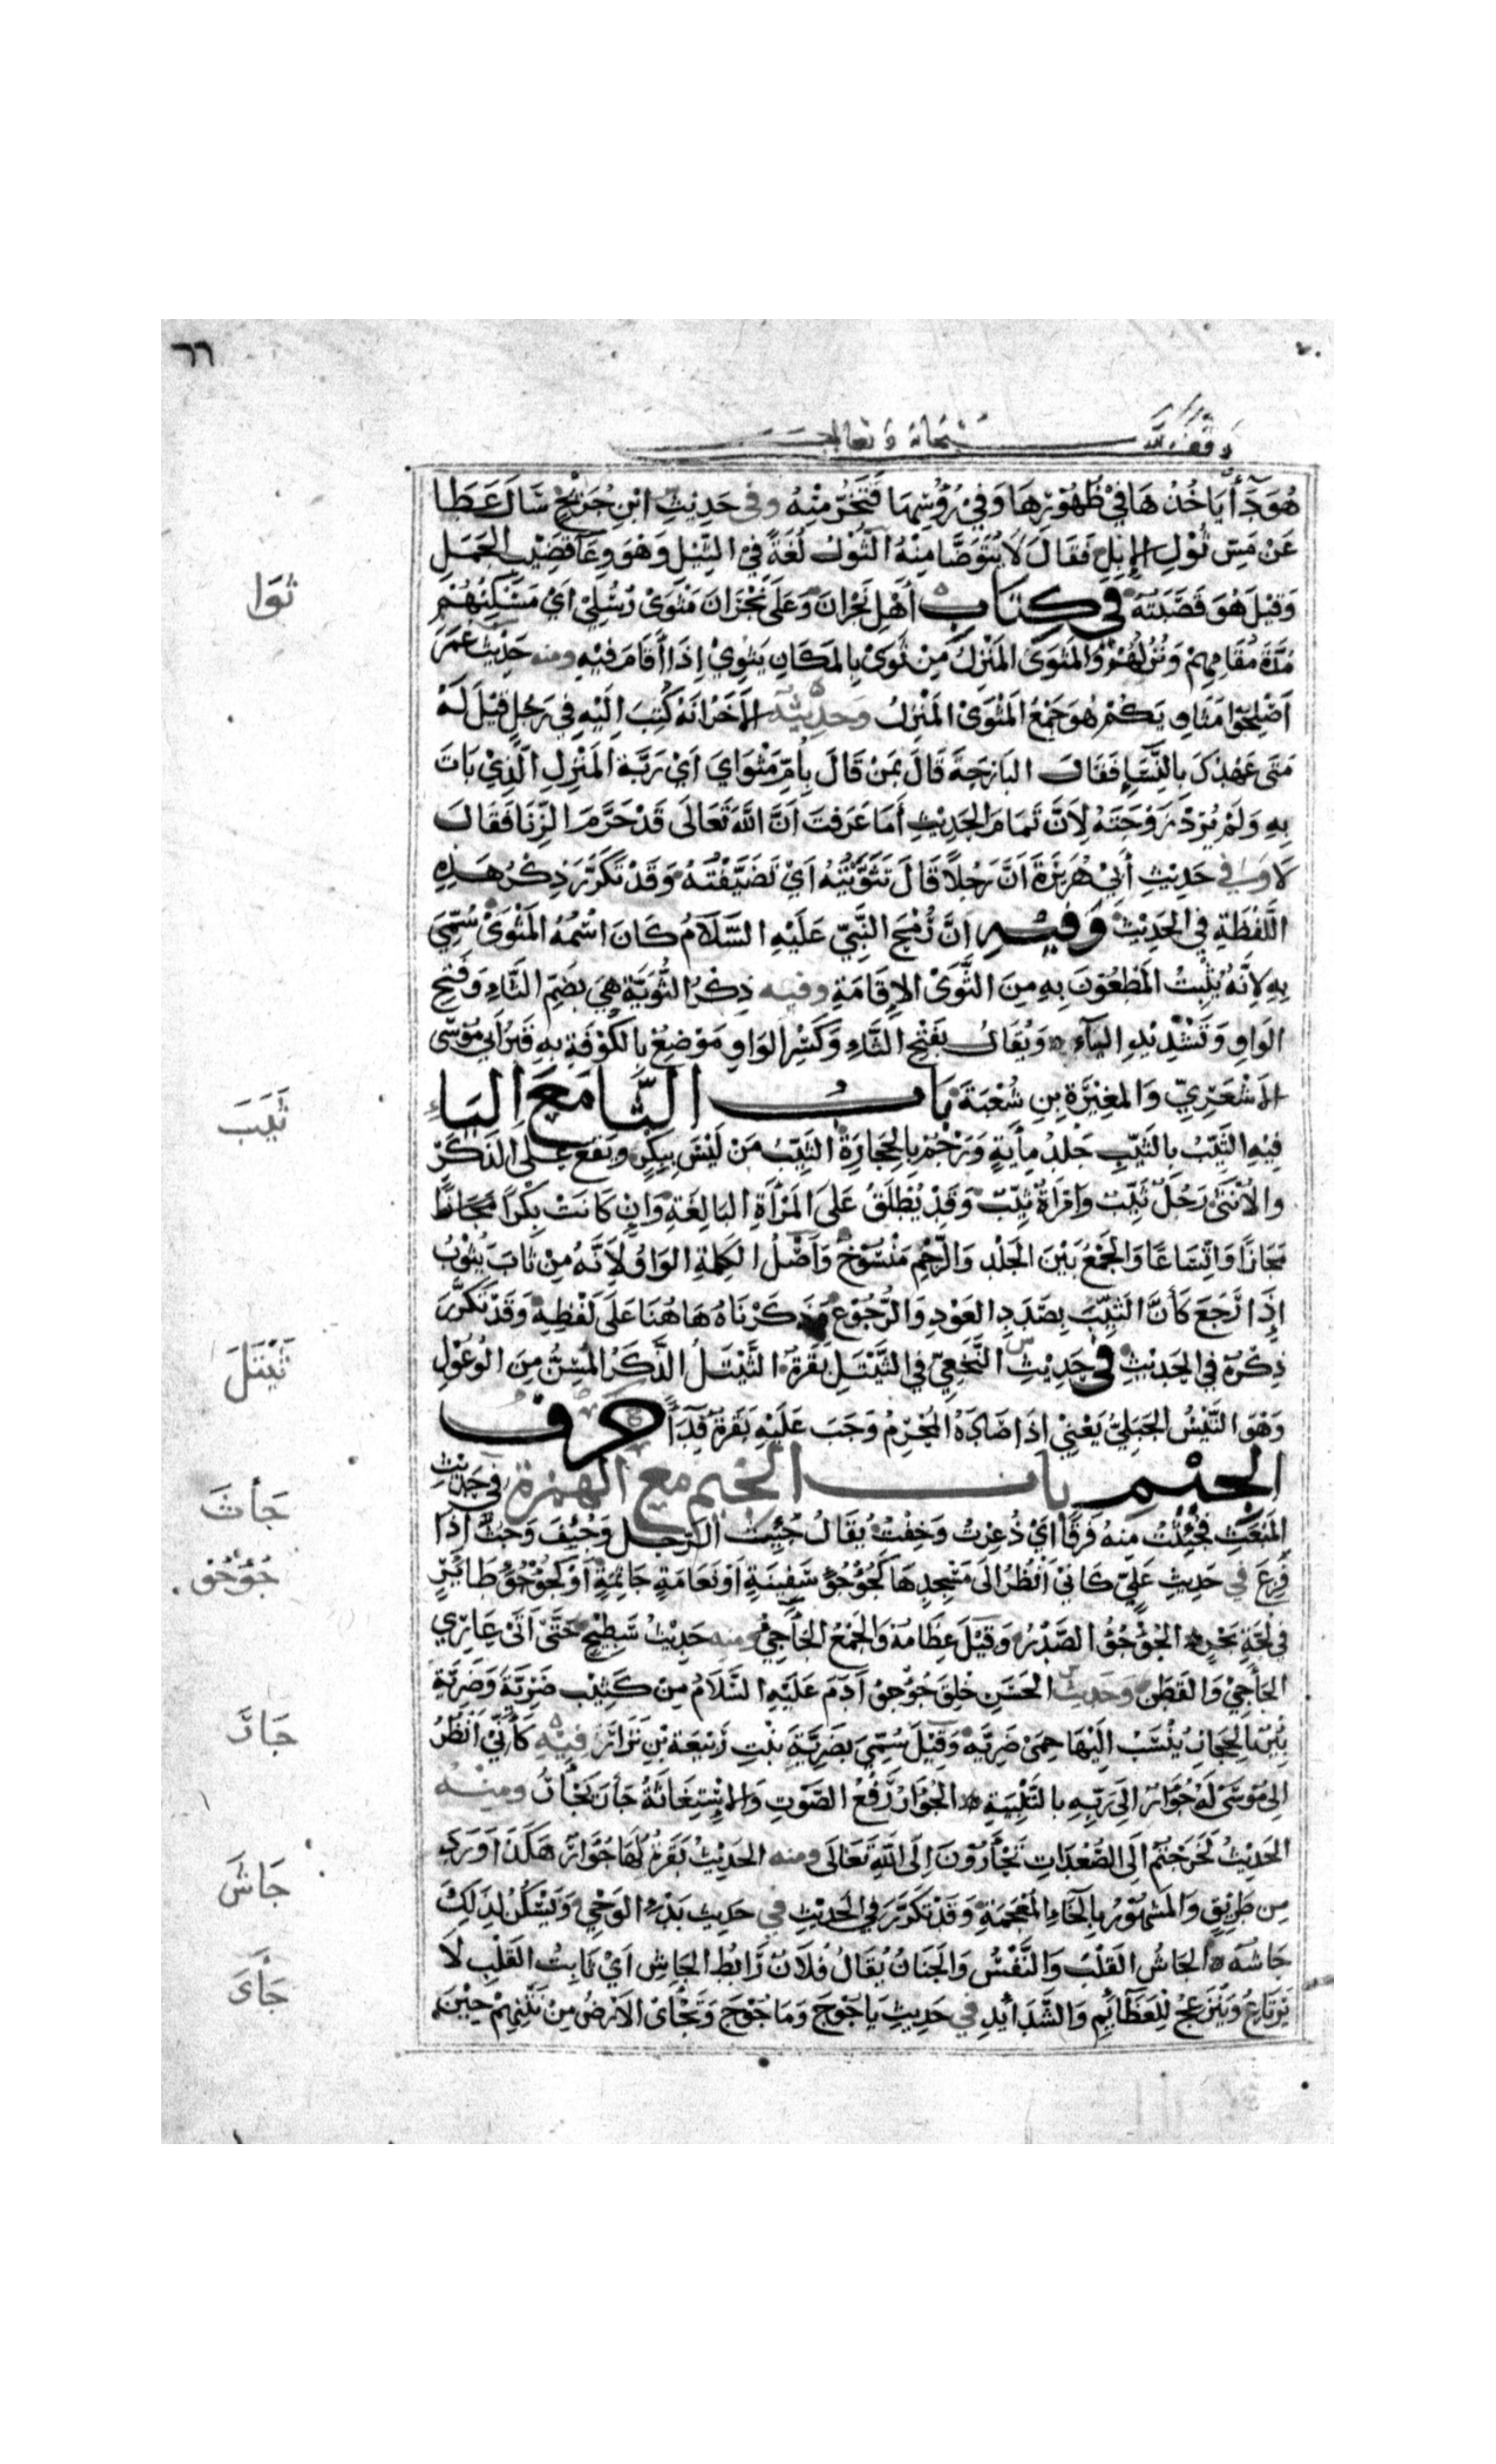 ٦٦
وقف لله سبحانه وتعالى
هُوَ دَآءٌ يَاخُذُهَا فِي ظُهُوْرِهَا وَفِي رُؤُسِهَا فَتَخِرُّ مِنْهُ وفي حَدِيثِ ابْنِ جُرَيْجٍ سَالَ عَطَا
عَنْ مَسِّ ثُوْلِ الإِبِلِ فَقَالَ لَا يُتَوَضَّا مِنْهُ الثُّوْلُ لُغَةٌ فِي الثِّيْلِ وَهُوَ وِعَآءُ قَضِيْبِ الجَمَلِ
وَقِيْلَ هُوَ قَضِيْبُهُ في كِتَابِ أَهْلِ نَجْرَانَ وَعَلَى نَجْرَانَ مَثْوَى رُسُلِيْ أَيْ مَسْكِنُهُمْ
مُدَّةَ مُقَامِهِمْ وَنُزُلُهُمْ وَالمَثْوَى المَنْزِلُ مِنْ ثَوَى بِالمَكَانِ يَثْوِيْ إِذَا أَقَامَ فِيْهِ ومنه حَدِيْثُ عُمَرَ
أَصْلِحُوا مَثَاوِيَكُمْ هُوَ جَمْعُ المَثْوَى المَنْزِلُ وَحَدِيْثُهُ الآخَرُ انَّهُ كُتِبَ إِلَيْهِ فِي رَجُلٍ قِيْلَ لَهُ
مَتَى عَهْدُكَ بِالنِّسَاءِ فَقَالَ البَارِحَةَ قَالَ بِمَنْ قَالَ بِأُمِّ مَثْوَايَ أَيْ رَبَّةِ المَنْزِلِ الَّذِيْ بَاتَ
بِهِ وَلَمْ يُرِدْ زَوْجَتَهُ لِأَنَّ تَمَامَ الحَدِيْثِ أَمَا عَرَفْتَ أَنَّ اللهَ تَعَالَى قَدْ حَرَّمَ الزِّنَا فَقَالَ
لَا وفي حَدِيْثِ أَبِي هُرَيْرَةَ أَنَّ رَجُلًا قَالَ تَثَوَّيْتُهُ أَيْ تَضَيَّفْتُهُ وَقَدْ تَكَرَّرَ ذِكْرُ هَذِهِ
اللَّفْظَةِ فِي الحَدِيْثِ وَفِيْهِ أَنَّ رُمْحَ النَّبِيِّ عَلَيْهِ السَّلَامُ كَانَ اسْمُهُ المُثْوِيَ سُمِّيَ
بِهِ لِأَنَّهُ يُثْبِتُ المَطْعُوْنَ بِهِ مِنَ الثَّوَى الإِقَامَةِ وفيه ذِكْرُ الثُّوَيَّةِ هِيَ بِضَمِّ الثَّاءِ وَفَتْحِ
الوَاوِ وَتَشْدِيْدِ اليَآءِ وَيُقَالُ بِفَتْحِ الثَّاءِ وَكَسْرِ الوَاوِ مَوْضِعٌ بِالكُوْفَةِ بِهِ قَبْرُ أَبِي مُوْسَى
الأَشْعَرِيِّ وَالمُغِيْرَةِ بْنِ شُعْبَةَ بَابُ الثَّا مَعَ اليَاءِ
فِيْهِ الثَّيِّبُ بِالثَّيِّبِ جَلْدُ مِأَيَةٍ وَرَجْمٌ بِالحِجَارَةِ الثَّيِّبُ مَنْ لَيْسَ بِبِكْرٍ ويَقَعُ عَلَى الذَّكَرِ
وَالأُنْثَى رَجُلٌ ثَيِّبٌ وامْرَأَةٌ ثَيِّبٌ وَقَدْ يُطْلَقُ عَلَى المَرْأَةِ البَالِغَةِ وَانْ كَانَتْ بِكْرًا مَجَازًا
مَجَازًا وَاتِّسَاعًا وَالجَمْعُ بَيْنَ الجَلْدِ وَالرَّجْمِ مَنْسُوْخٌ وَأَصْلُ الكَلِمَةِ الوَاوُ لِأَنَّهُ مِنْ ثَابَ يَثُوْبُ
إِذَا رَجَعَ كَأَنَّ الثَّيِّبَ بِصَدَدِ العَوْدِ وَالرُّجُوْعِ وَذَكَرْنَاهُ هَاهُنَا عَلَى لَفْظِهِ وَقَدْ تَكَرَّرَ
ذِكْرُهُ فِي الحَدِيْثِ في حَدِيْثِ النَّخَعِيِّ فِي الثَّيْتَلِ بَقَرَةٌ الثَّيْتَلُ الذَّكَرُ المُسِنُّ مِنَ الوُعُوْلِ
وَهُوَ التَّيْسُ الجَبَلِيُّ يَعْنِيْ اذَا صَادَهُ المُحْرِمُ وَجَبَ عَلَيْهِ بَقَرَةٌ فِدَآءً حرف
الجيْمِ باب الجيم مع الهمزة في حَدِيْثِ
المَبْعَثِ فَجُئِثْتُ مِنْهُ فَرَقًا أَيْ ذُعِرْتُ وَخِفْتُ يُقَالُ جُئِثَ الرَّجُلُ وَجُئِفَ وَجُثَّ إِذَا
فَزِعَ في حَدِيثِ عَلِيٍّ كَانِّيْ أَنْظُرُ الَى مَسْجِدِهَا كَجُؤْجُؤِ سَفِيْنَةٍ أَوْ نَعَامَةٍ جَاثِمَةٍ أَوْ كَجُؤْجُؤِ طَائِرٍ
فِي لُجَّةِ بَحْرٍ الجُؤْجُؤُ الصَّدْرُ وَقِيْلَ عِظَامُهُ وَالجَمْعُ الجَآجِئُ ومنه حَدِيْثُ سَطِيْحٍ حَتَّى أَتَى عَارِي
الجَآجِيْ وَالقَطَنْ وَحَدِيْثُ الحَسَنِ خُلِقَ جُؤْجُؤُ آدَمَ عَلَيْهِ السَّلَامُ مِنْ كَثِيْبِ ضَرِيَّةَ وَضَرِيَّةُ
بِئْرٌ بِالحِجَازِ يُنْسَبُ إِلَيْهَا حِمَى ضَرِيَّةَ وَقِيْلَ سُمِّيَ بِضَرِيَّةَ بِنْتِ رَبِيْعَةَ بْنِ نِزَارٍ فِيْهِ كَأَنِّيْ أَنْظُرُ
الَى مُوْسَى لَهُ جُؤَارٌ الَى رَبِّهِ بِالتَّلْبِيَةِ الجُؤَارُ رَفْعُ الصَّوْتِ وَالاسْتِغَاثَةُ جَأَرَ يَجْأَرُ ومِنْهُ
الحَدِيْثُ لَخَرَجْتُمْ الَى الصُّعُدَاتِ تَجْأَرُوْنَ إِلَى اللهِ تَعَالَى ومنه الحَدِيْثُ بَقَرَةٌ لَهَا جُؤَارٌ هَكَذَا وَرَدَ
مِن طَرِيْقٍ وَالمَشْهُوْرُ بِالخَاءِ المُعْجَمَةِ وَقَدْ تَكَرَّرَ فِي الحَدِيْثِ في حَدِيثِ بَدْءِ الوَحْيِ وَيَسْكُنُ لِذَلِكَ
جَاشُهُ الجَاشُ القَلْبُ وَالنَّفْسُ وَالجَنَانُ يُقَالُ فُلَانٌ رَابِطُ الجَاشِ أَيْ ثَابِتُ القَلْبِ لَا
يَرْتَاعُ وَيَنْزَعِجُ لِلْعَظَائِمِ وَالشَّدَائِدِ في حَدِيْثِ يَاجُوْجَ وَمَاجُوْجَ وَتَجْأَى الأَرْضُ مِنْ نَتْنِهِمْ حِيْنَ
ثَوَا
ثَيَبَ
ثَيْتَلَ
جَأثَ
جُؤْجُؤ
جَارَ
جَاشَ
جَأَى